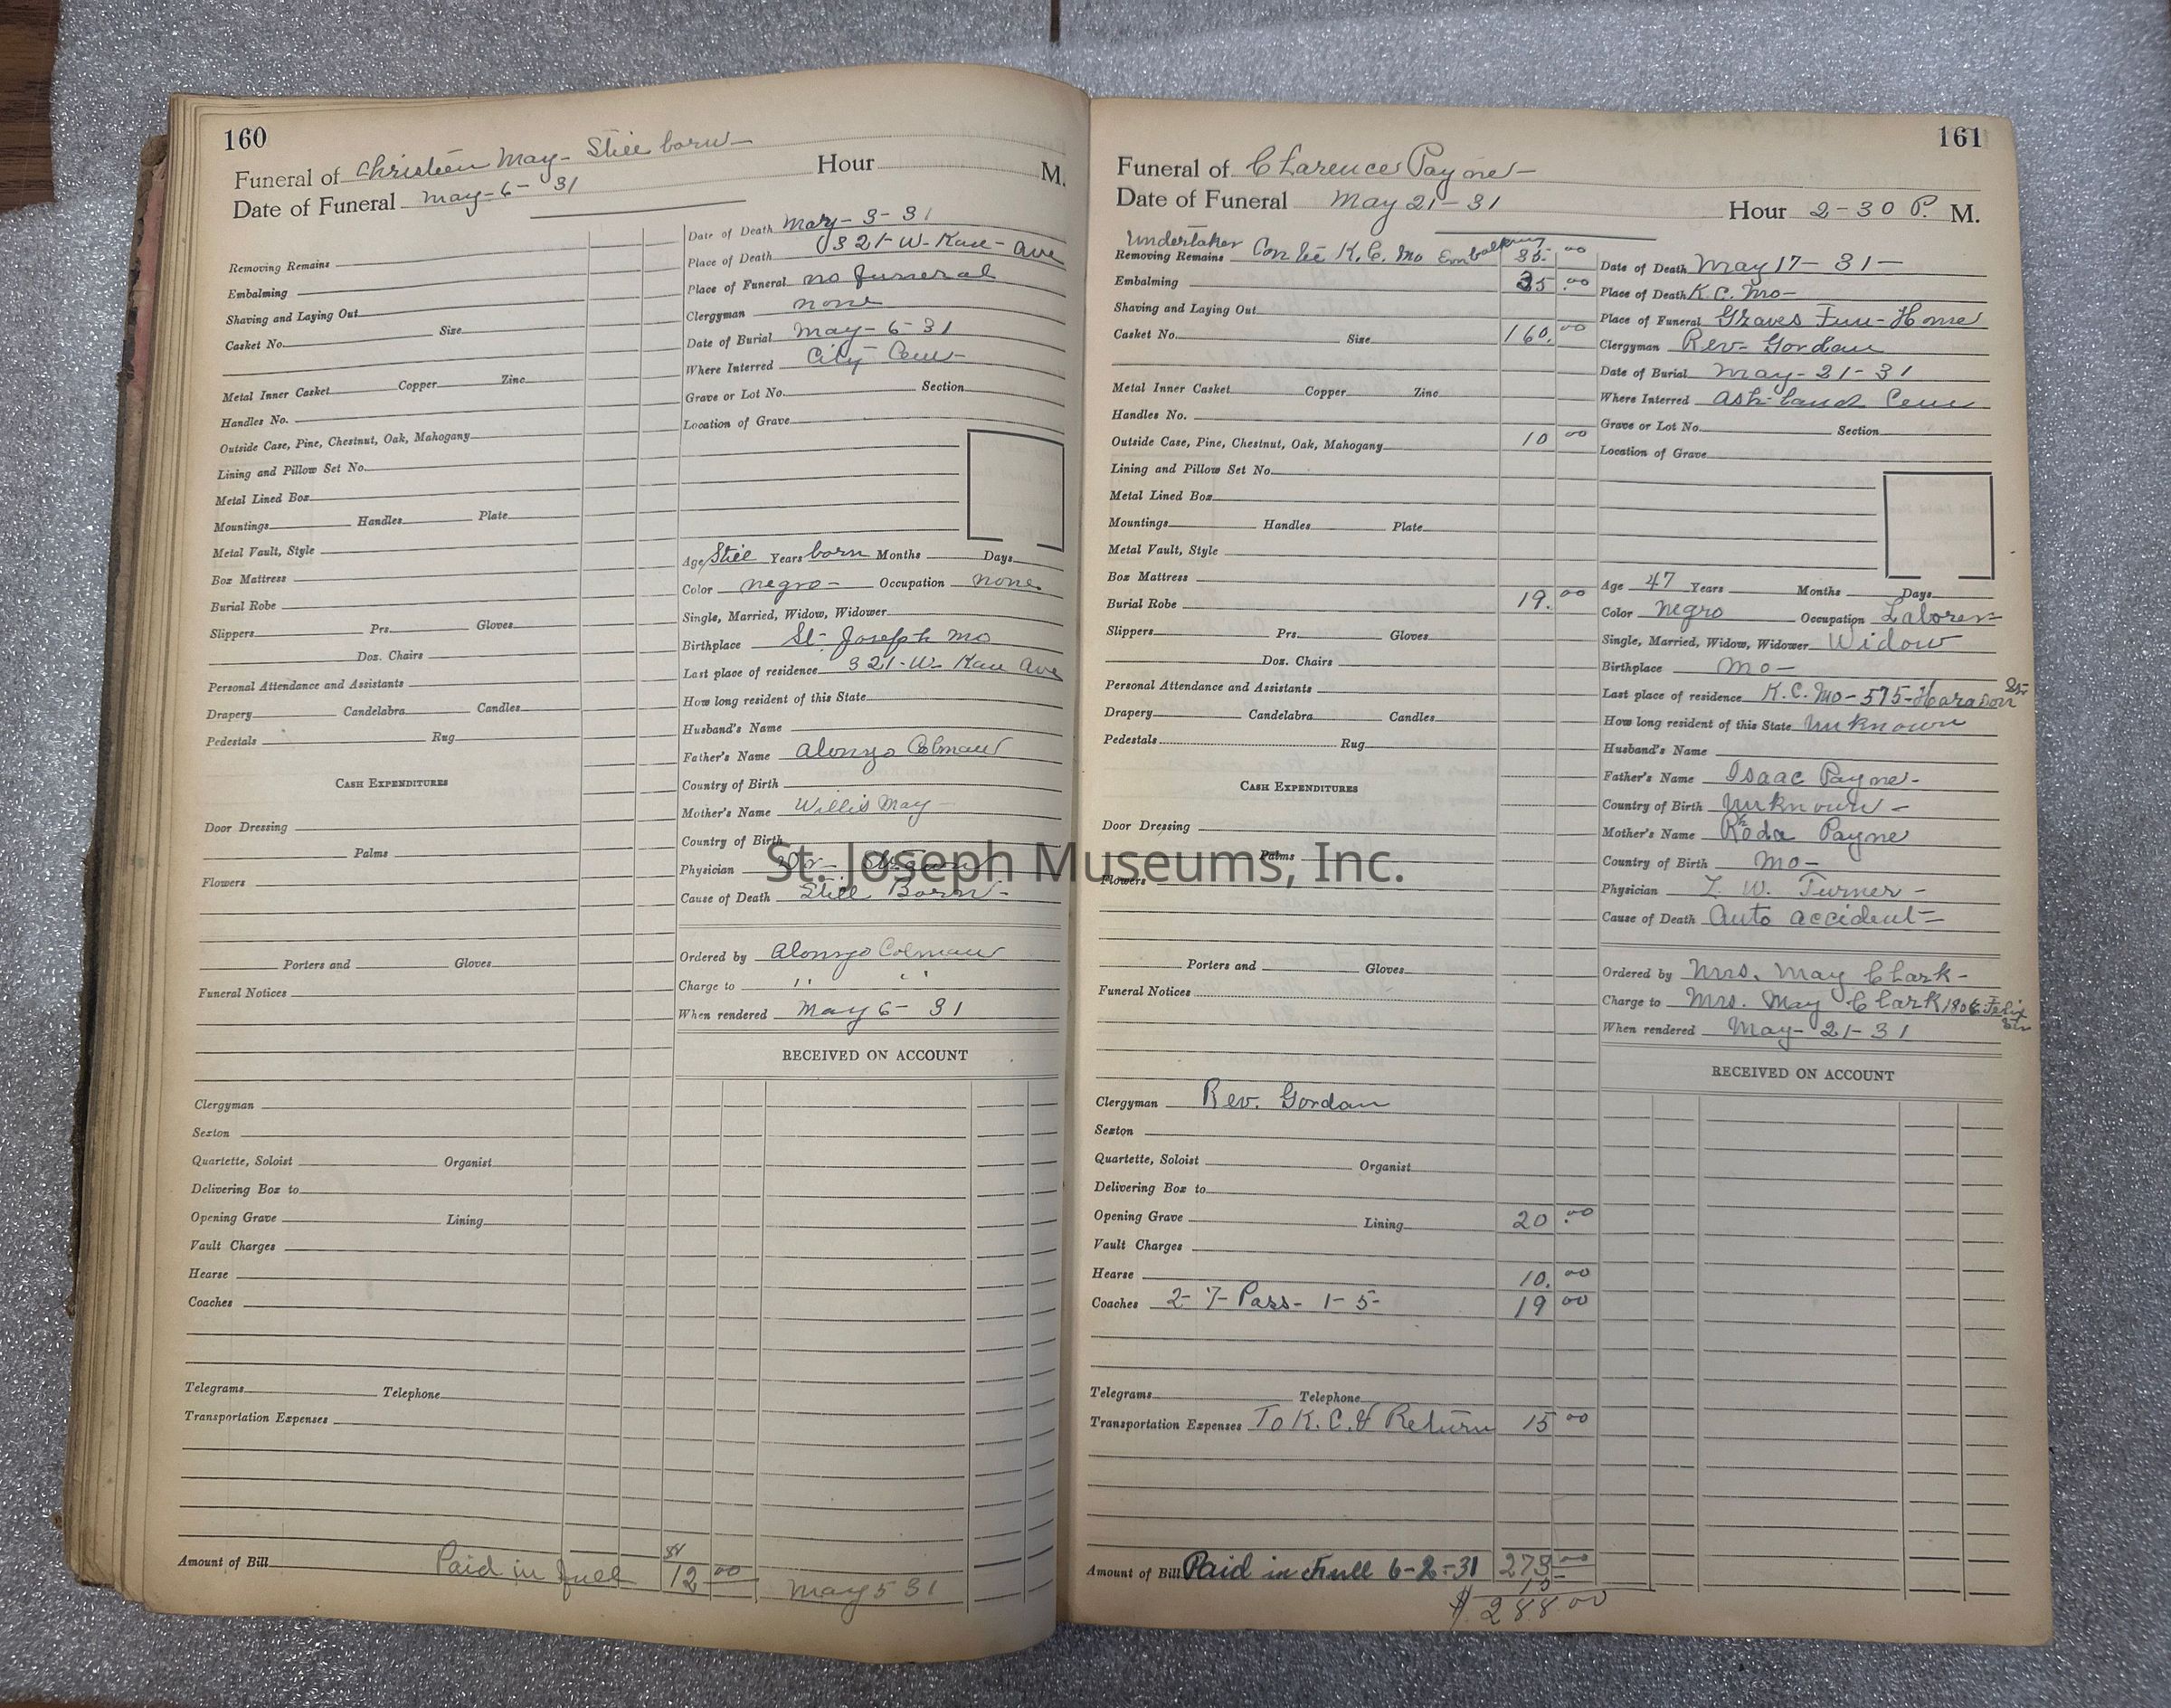 160
Funeral of Christeen May - Still born -
Hour M.
Date of Funeral May - 6 - 31
Removing Remains
Embalming
Shaving and Laying Out
Casket No. Size
Metal Inner Casket Copper Zinc
Handles No.
Outside Case, Pine, Chestnut, Oak, Mahogany
Lining and Pillow Set No.
Metal Lined Box
Mountings Handles Plate
Metal Vault, Style
Box Mattress
Burial Robe
Slippers Prs. Gloves
Doz. Chairs
Personal Attendance and Assistants
Drapery Candelabra Candles
Pedestals Rug
CASH EXPENDITURES
Door Dressing
Palms
Flowers
Porters and Gloves
Funeral Notices
Clergyman
Sexton
Quartette, Soloist Organist
Delivering Box to
Opening Grave Lining
Vault Charges
Hearse
Coaches
Telegrams Telephone
Transportation Expenses
Amount of Bill Paid in full $12.00 May 5 31
Date of Death May - 3 - 31
Place of Death 321 - W - Kau - Ave
Place of Funeral no funeral
Clergyman none
Date of Burial May - 6 - 31
Where Interred City Cem -
Grave or Lot No. Section
Location of Grave
Age Still Years born Months Days
Color negro - Occupation none
Single, Married, Widow, Widower
Birthplace St. Joseph Mo
Last place of residence 321 - W - Kau Ave
How long resident of this State
Husband's Name
Father's Name Alonzo Colman
Country of Birth
Mother's Name Willis May -
Country of Birth
Physician Dr -
Cause of Death Still Born -
Ordered by Alonzo Colman
Charge to " "
When rendered May 6 - 31
RECEIVED ON ACCOUNT
St. Joseph Museums, Inc.
161
Funeral of Clarence Payne -
Date of Funeral May 21 - 31
Hour 2 - 30 P. M.
Undertaker
Removing Remains K.C. Mo Embalming 35.00
Embalming 35.00
Shaving and Laying Out
Casket No. Size 160.00
Metal Inner Casket Copper Zinc
Handles No.
Outside Case, Pine, Chestnut, Oak, Mahogany 10 00
Lining and Pillow Set No.
Metal Lined Box
Mountings Handles Plate
Metal Vault, Style
Box Mattress
Burial Robe 19.00
Slippers Prs. Gloves
Doz. Chairs
Personal Attendance and Assistants
Drapery Candelabra Candles
Pedestals Rug
CASH EXPENDITURES
Door Dressing
Palms
Flowers
Porters and Gloves
Funeral Notices
Clergyman Rev. Gordan
Sexton
Quartette, Soloist Organist
Delivering Box to
Opening Grave Lining 20.00
Vault Charges
Hearse 10.00
Coaches 2 - 7 - Pass - 1 - 5 - 19 00
Telegrams Telephone
Transportation Expenses To K.C. & Return 15 00
Amount of Bill Paid in Full 6-2-31 273.00
15 -
$288.00
Date of Death May 17 - 31 -
Place of Death K.C. Mo -
Place of Funeral Graves Fun - Home
Clergyman Rev - Gordan
Date of Burial May - 21 - 31
Where Interred Ashland Cem
Grave or Lot No. Section
Location of Grave
Age 47 Years Months Days
Color Negro Occupation Laborer
Single, Married, Widow, Widower Widow
Birthplace Mo -
Last place of residence K.C. Mo - 575 - St.
How long resident of this State Unknown
Husband's Name
Father's Name Isaac Payne -
Country of Birth Unknown -
Mother's Name Rhoda Payne
Country of Birth Mo -
Physician W. Turner -
Cause of Death Auto accident -
Ordered by Mrs. May Clark -
Charge to Mrs. May Clark 1806 Felix St
When rendered May - 21 - 31
RECEIVED ON ACCOUNT